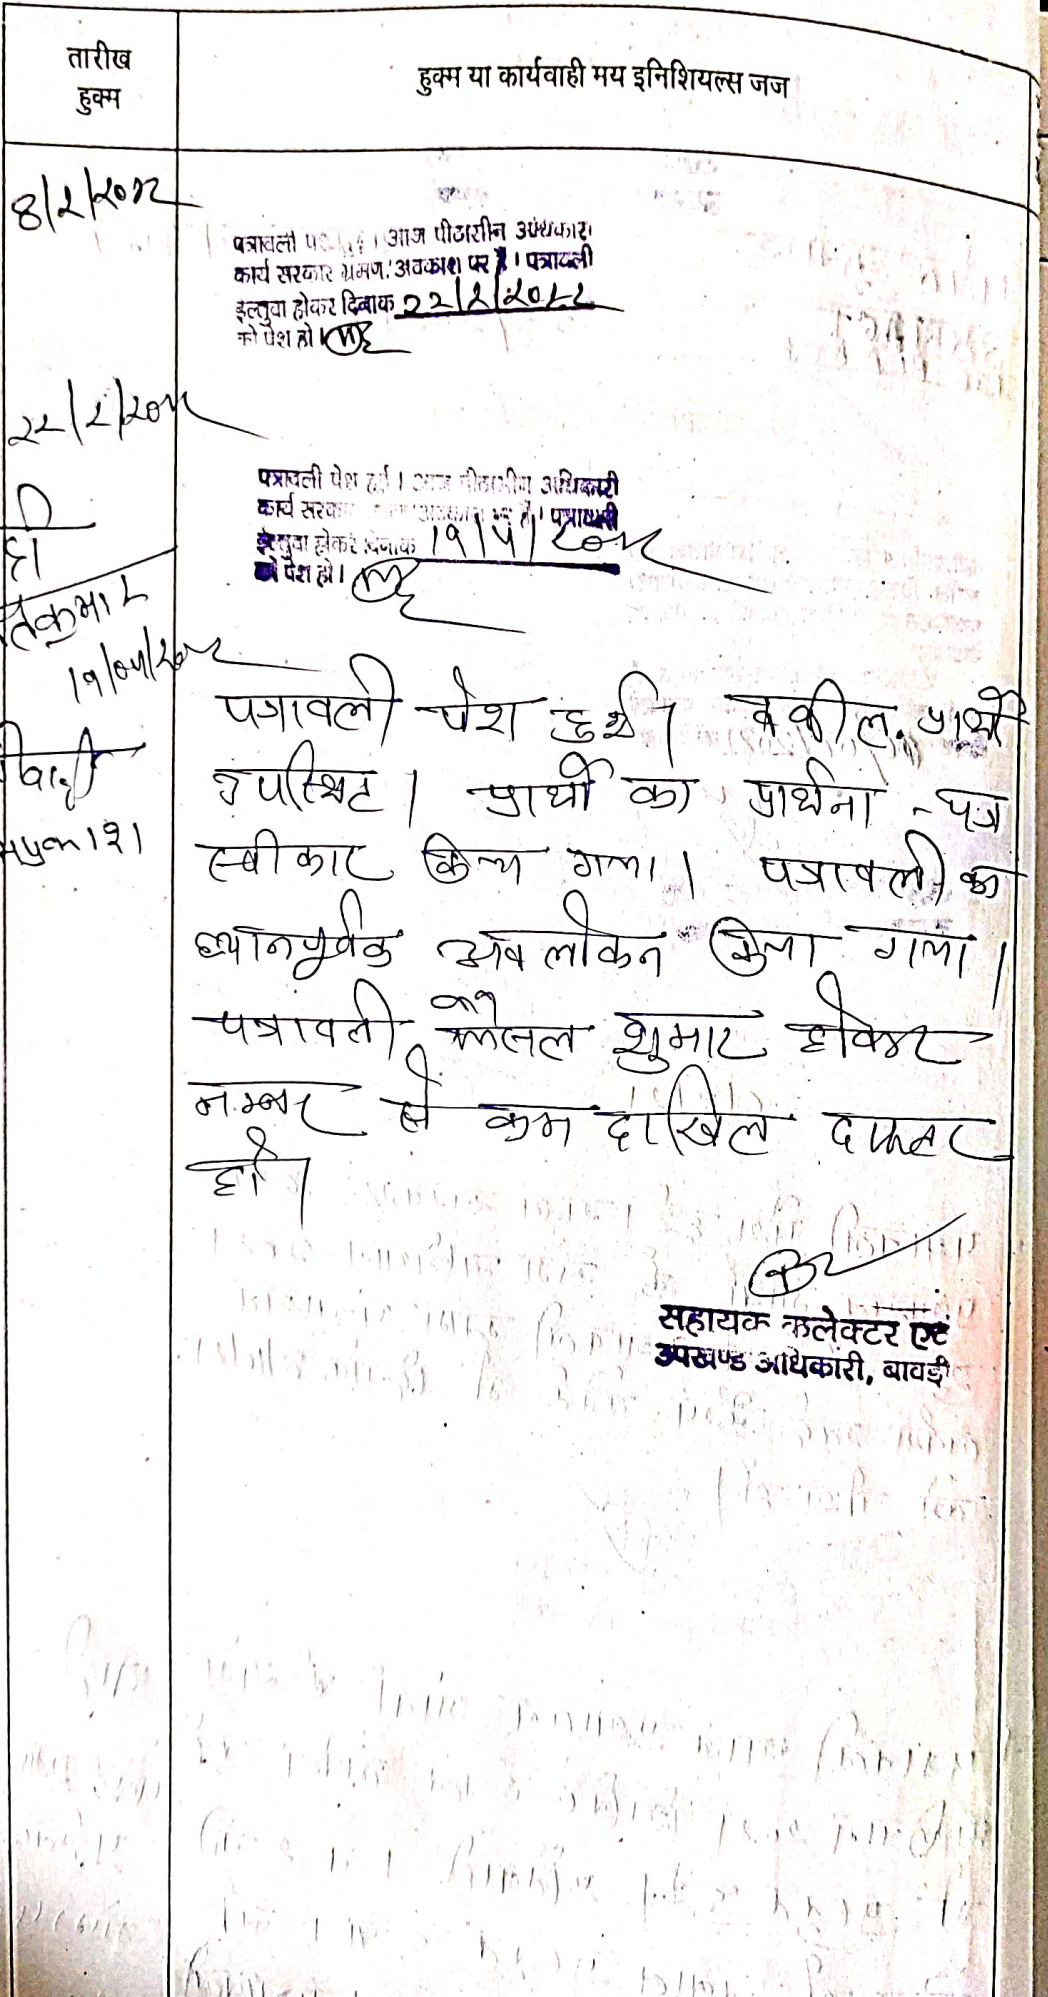 तारीख
हुक्म
हुक्म या कार्यवाही मय इनिशियल्स जज
8/2/2022
पत्रावली आज पीठासीन अधिकारी
कार्य सरकार भ्रमण/अवकाश पर है। पत्रावली
इल्तुवा होकर दिनांक 22/2/2022
को पेश हो।
22/2/2022
पत्रावली पेश हुई। आज पीठासीन अधिकारी
कार्य सरकार अवकाश पर है। पत्रावली
इल्तुवा होकर दिनांक 19/5/2022
को पेश हो।
दी
तकुमार
19/05/2022
वादी
पत्रावली पेश हुई। वकील प्रार्थी
उपस्थित। प्रार्थी का प्रार्थना-पत्र
स्वीकार किया गया। पत्रावली का
ध्यानपूर्वक अवलोकन किया गया।
पत्रावली फैसल शुमार होकर
नम्बर से कम दाखिल दफ्तर
हो।
सहायक कलेक्टर एवं
उपखण्ड अधिकारी, बावडी